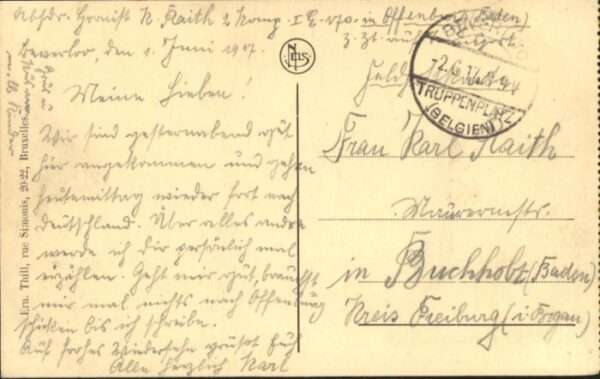 Absdr. Hornist K. Raith 2 Komp. I. E. 170. in Offenburg (Baden)
z. Zt. auf
Beverloo, den 1. Juni 1917.
Meine Lieben!
Wir sind gesternabend gut
hier angekommen und gehn
heutemittag wieder fort nach
Deutschland. Über alles andre
werde ich dir persönlich mal
erzählen. Geht mir gut, braucht
mir mal nichts nach Offenburg
schicken bis ich schreibe.
Auf frohes Wiedersehn grüßt Euch
Alle herzlich Karl
Gruß u. Kuß
Kinder
Ern. Thill, rue Simonis, 20-22, Bruxelles
NELS
TRUPPENPLATZ
(BELGIEN)
Frau Karl Raith
Maurermstrs.
in Buchholz (Baden)
Kreis Freiburg (i. Brsgau)